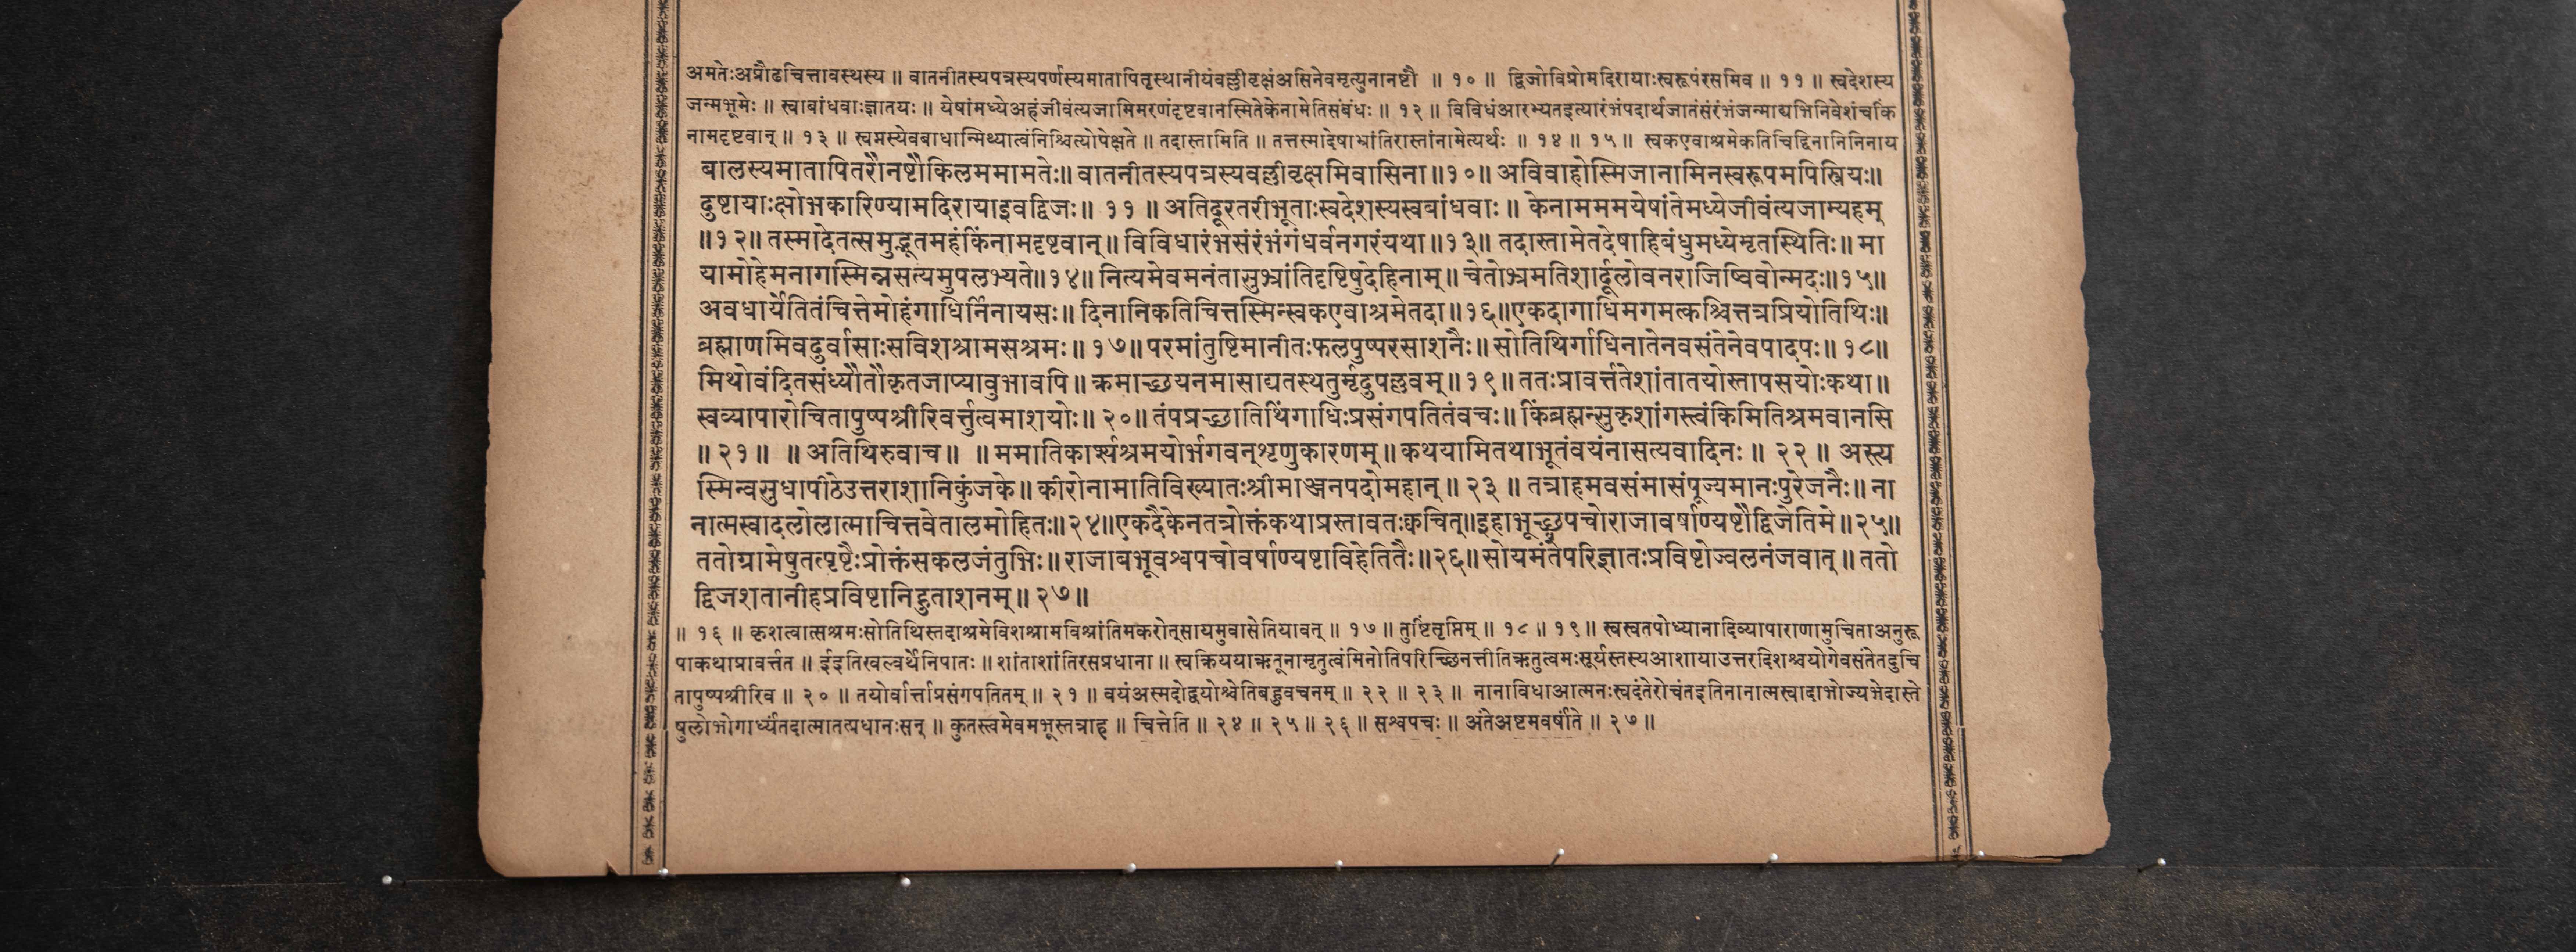 अमतेःअप्रौढचित्तावस्थस्य ॥ वातनीतस्यपत्रस्यपर्णस्यमातापितृस्थानीयंवल्लीवृक्षंअसिनेवमृत्युनानष्टौ ॥ १० ॥ द्विजोविप्रोमदिरायाःस्वरूपंरसमिव ॥ ११ ॥ स्वदेशस्य
जन्मभूमेः ॥ स्वाबांधवाःज्ञातयः ॥ येषांमध्येअहंजीवंत्यजामिमरणंदृष्टवानस्मितेकेनामेतिसंबंधः ॥ १२ ॥ विविधंआरभ्यतइत्यारंभंपदार्थजातंसंरंभंजन्माद्यभिनिवेशंचकिं
नामदृष्टवान् ॥ १३ ॥ स्वप्नस्येवबाधान्मिथ्यात्वंनिश्चित्योपेक्षते ॥ तदास्तामिति ॥ तत्तस्मादेषाभ्रांतिरास्तांनामेत्यर्थः ॥ १४ ॥ १५ ॥ स्वकएवाश्रमेकतिचिद्दिनानिनिनाय
बालस्यमातापितरौनष्टौकिलममामतेः॥ वातनीतस्यपत्रस्यवल्लीवृक्षमिवासिना॥१०॥ अविवाहोस्मिजानामिनस्वरूपमपिस्त्रियः॥
दुष्टायाःक्षोभकारिण्यामदिरायाइवद्विजः॥ ११ ॥ अतिदूरतरीभूताःस्वदेशस्यस्वबांधवाः॥ केनामममयेषांतेमध्येजीवंत्यजाम्यहम्
॥१२॥ तस्मादेतत्समुद्भूतमहंकिंनामदृष्टवान्॥ विविधारंभसंरंभंगंधर्वनगरंयथा॥१३॥ तदास्तामेतदेषाहिबंधुमध्येमृतस्थितिः॥ मा
यामोहेमनागस्मिन्नसत्यमुपलभ्यते॥१४॥ नित्यमेवमनंतासुभ्रांतिदृष्टिषुदेहिनाम्॥ चेतोभ्रमतिशार्दूलोवनराजिष्विवोन्मदः॥१५॥
अवधार्येतितंचित्तेमोहंगाधिर्निनायसः॥ दिनानिकतिचित्तस्मिन्स्वकएवाश्रमेतदा॥१६॥एकदागाधिमगमत्कश्चित्तत्रप्रियोतिथिः॥
ब्रह्माणमिवदुर्वासाःसविशश्रामसश्रमः॥ १७॥ परमांतुष्टिमानीतःफलपुष्परसाशनैः॥ सोतिथिर्गाधिनातेनवसंतेनेवपादपः॥ १८॥
मिथोवंदितसंध्यौतौकृतजाप्यावुभावपि॥ क्रमाच्छयनमासाद्यतस्थतुर्मृदुपल्लवम्॥१९॥ ततःप्रावर्त्ततेशांतातयोस्तापसयोःकथा॥
स्वव्यापारोचितापुष्पश्रीरिवर्त्तुत्वमाशयोः॥ २०॥ तंपप्रच्छातिथिंगाधिःप्रसंगपतितंवचः॥ किंब्रह्मन्सुकृशांगस्त्वंकिमितिश्रमवानसि
॥ २१॥ ॥ अतिथिरुवाच॥ ॥ ममातिकार्श्यश्रमयोर्भगवन्शृणुकारणम्॥ कथयामितथाभूतंवयंनासत्यवादिनः॥ २२॥ अस्त्य
स्मिन्वसुधापीठेउत्तराशानिकुंजके॥ कीरोनामातिविख्यातःश्रीमाञ्जनपदोमहान्॥ २३॥ तत्राहमवसंमासंपूज्यमानःपुरेजनैः॥ ना
नात्मस्वादलोलात्माचित्तवेतालमोहितः॥२४॥एकदैकेनतत्रोक्तंकथाप्रस्तावतःक्वचित्॥इहाभूच्छ्वपचोराजावर्षाण्यष्टौद्विजेतिमे॥२५॥
ततोग्रामेषुतत्पृष्टैःप्रोक्तंसकलजंतुभिः॥ राजाबभूवश्वपचोवर्षाण्यष्टाविहेतितैः॥२६॥ सोयमंतेपरिज्ञातःप्रविष्टोज्वलनंजवात्॥ ततो
द्विजशतानीहप्रविष्टानिहुताशनम्॥ २७॥
॥ १६ ॥ कृशत्वात्सश्रमःसोतिथिस्तदाश्रमेविशश्रामविश्रांतिमकरोत्सायमुवासेतियावत् ॥ १७॥ तुष्टिंतृप्तिम् ॥ १८ ॥ १९॥ स्वस्वतपोध्यानादिव्यापाराणामुचिताअनुरू
पाकथाप्रावर्त्तत ॥ ईइतिखल्वर्थेनिपातः ॥ शांताशांतिरसप्रधाना ॥ स्वक्रिययाऋतूनामृतुत्वंमिनोतिपरिच्छिनत्तीतिऋतुत्वमःसूर्यस्तस्यआशायाउत्तरदिशश्चयोगेवसंतेतदुचि
तापुष्पश्रीरिव ॥ २० ॥ तयोर्वार्त्ताप्रसंगपतितम् ॥ २१ ॥ वयंअस्मदोद्वयोश्चेतिबहुवचनम् ॥ २२ ॥ २३ ॥ नानाविधाआत्मनःस्वदंतेरोचंतइतिनानात्मस्वादाभोज्यभेदास्ते
षुलोभोगार्ध्यंतदात्मातत्प्रधानःसन् ॥ कुतस्त्वमेवमभूस्तत्राह ॥ चित्तेति ॥ २४ ॥ २५ ॥ २६ ॥ सश्वपचः ॥ अंतेअष्टमवर्षांते ॥ २७ ॥